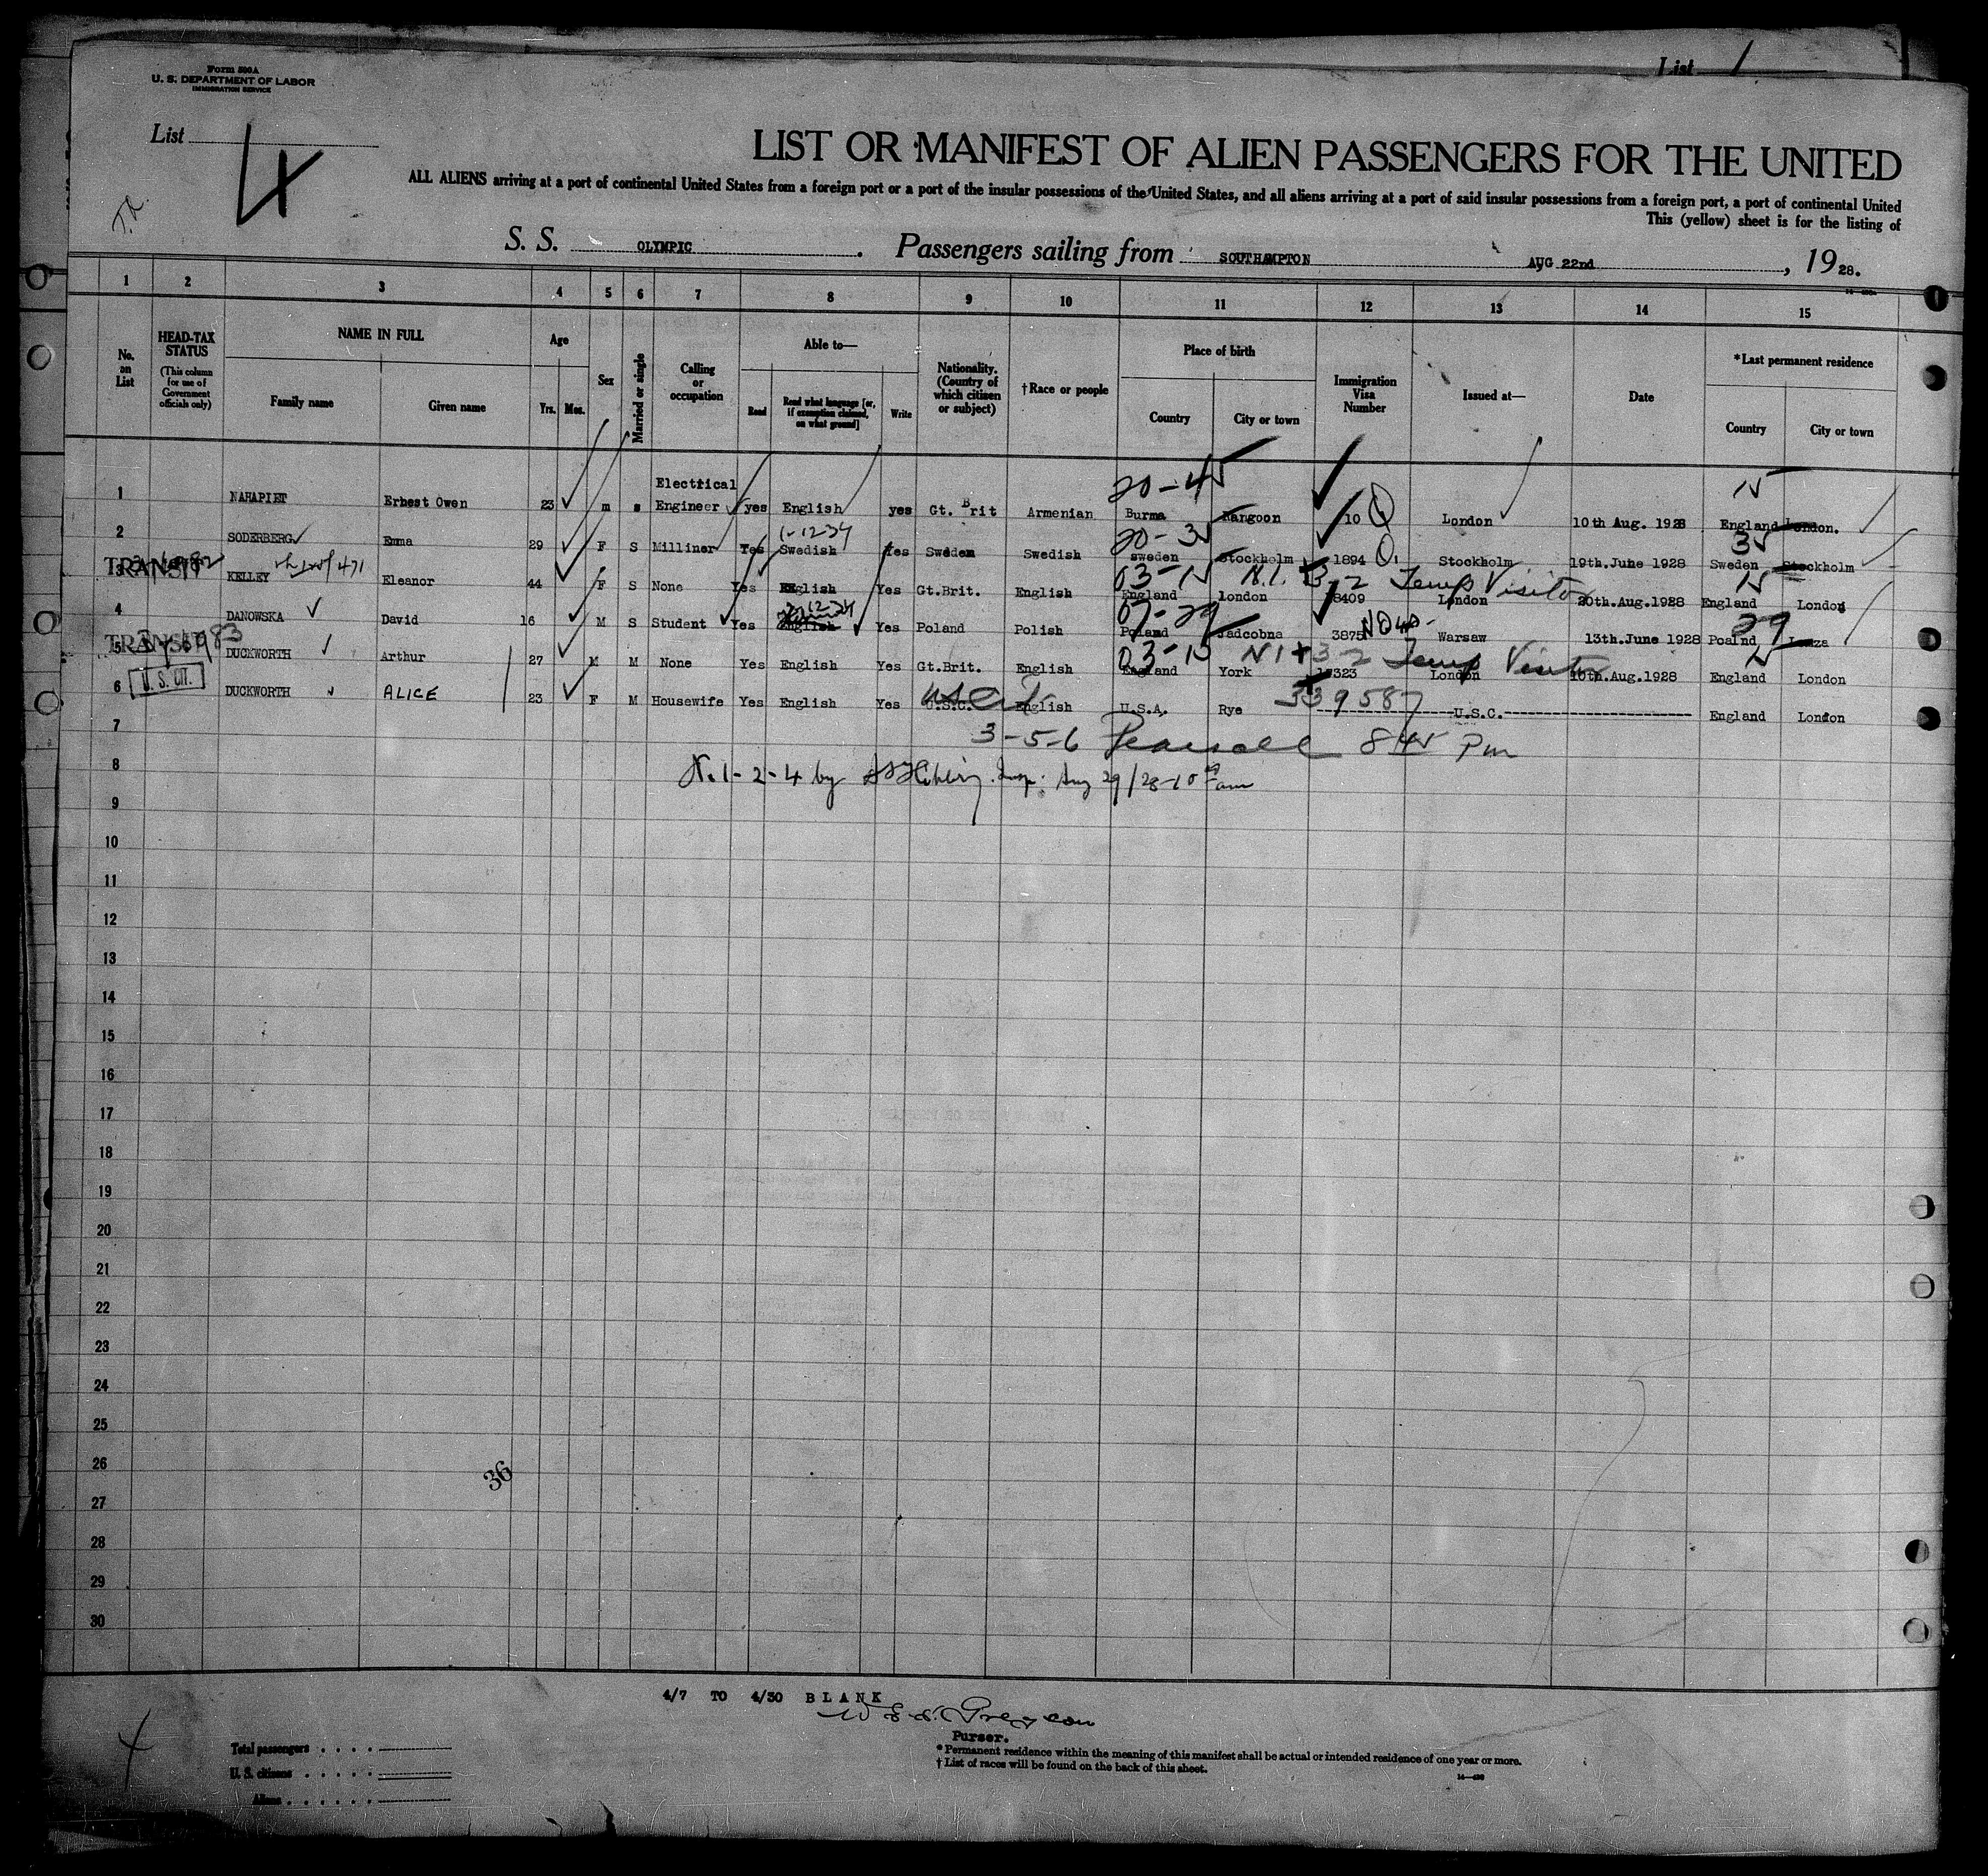 List 1
Form 500A
U. S. DEPARTMENT OF LABOR
IMMIGRATION SERVICE
List 4
LIST OR MANIFEST OF ALIEN PASSENGERS FOR THE UNITED
ALL ALIENS arriving at a port of continental United States from a foreign port or a port of the insular possessions of the United States, and all aliens arriving at a port of said insular possessions from a foreign port, a port of continental United
This (yellow) sheet is for the listing of
S. S. OLYMPIC. Passengers sailing from SOUTHAMPTON AUG 22nd, 1928.
1 2 3 4 5 6 7 8 9 10 11 12 13 14 15
No. on List
HEAD-TAX STATUS
(This column for use of Government officials only)
NAME IN FULL
Family name Given name
Age
Yrs. Mos.
Sex
Married or single
Calling or occupation
Able to—
Read Read what language [or, if exemption claimed, on what ground] Write
Nationality. (Country of which citizen or subject)
†Race or people
Place of birth
Country City or town
Immigration Visa Number
Issued at—
Date
*Last permanent residence
Country City or town
20-45 15
1 NAHAPIET Ernest Owen 23 m s Electrical Engineer yes English yes Gt. Brit Armenian Burma Rangoon 10 Q London 10th Aug. 1928 England London.
1-12-34 20-35 35
2 SODERBERG Emma 29 F S Milliner Yes Swedish Yes Sweden Swedish Sweden Stockholm 1894 Q Stockholm 19th.June 1928 Sweden Stockholm
TRANSIT 03-15 N.I. 3-2 Temp Visitor 15
3 KELLEY Eleanor 44 F S None Yes English Yes Gt.Brit. English England London 8409 London 20th.Aug.1928 England London
07-29 29
4 DANOWSKA David 16 M S Student Yes English Yes Poland Polish Poland Jadcobna 3875 Warsaw 13th.June 1928 Poalnd Lomza
TRANSIT 03-15 NI+3-2 Temp Visitor 15
5 DUCKWORTH Arthur 27 M M None Yes English Yes Gt.Brit. English England York 323 London 10th.Aug.1928 England London
U. S. CIT.
6 DUCKWORTH ALICE 23 F M Housewife Yes English Yes U.S.C. English U.S.A. Rye 339587 U.S.C. England London
7 3-5-6 Pearsall 845 Pm
8 N. 1-2-4 by Insp. Aug 29/28-10 am
9
10
11
12
13
14
15
16
17
18
19
20
21
22
23
24
25
26
36
27
28
29
30
4/7 TO 4/30 BLANK
Purser.
4
Total passengers
U. S. citizens
Aliens
* Permanent residence within the meaning of this manifest shall be actual or intended residence of one year or more.
† List of races will be found on the back of this sheet.